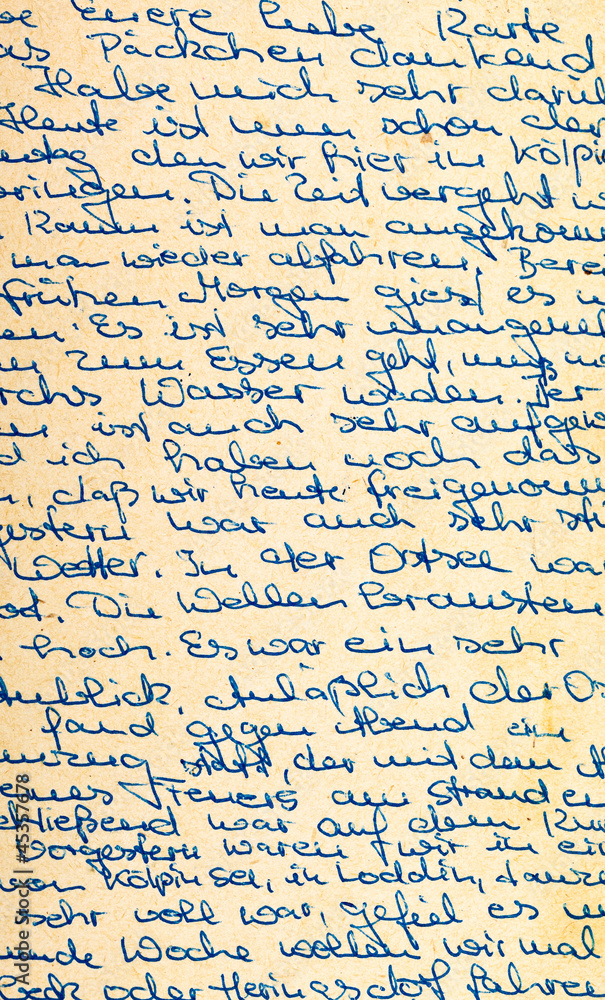 be Eure liebe Karte
as Päckchen dankend
Habe mich sehr darüb
Heute ist nun schon der
ntag den wir hier in Kölpin
bringen. Die Zeit vergeht w
Kaum ist man angekomm
man wieder abfahren. Berei
frühen Morgen giest es u
en. Es ist sehr unangeneh
zum Essen geht, muß m
rchs Wasser waden. Der
ist auch sehr aufgew
d ich haben noch das
n, daß wir heute freigenomm
gestern war auch sehr stü
Wetter. In der Ostsee war
ot. Die Wellen brausten
hoch. Es war ein sehr
Anblick. Anläßlich der Os
fand gegen Abend ein
mzug statt, der mit dem A
eines Feuers am Strand en
chließend war auf dem Kur
Vorgestern waren wir in ein
von Kölpinsee, in Loddin, tanze
sehr voll war, gefiel es u
Woche wollen wir mal
oder Heringsdorf fahren
Adobe Stock | #45357678